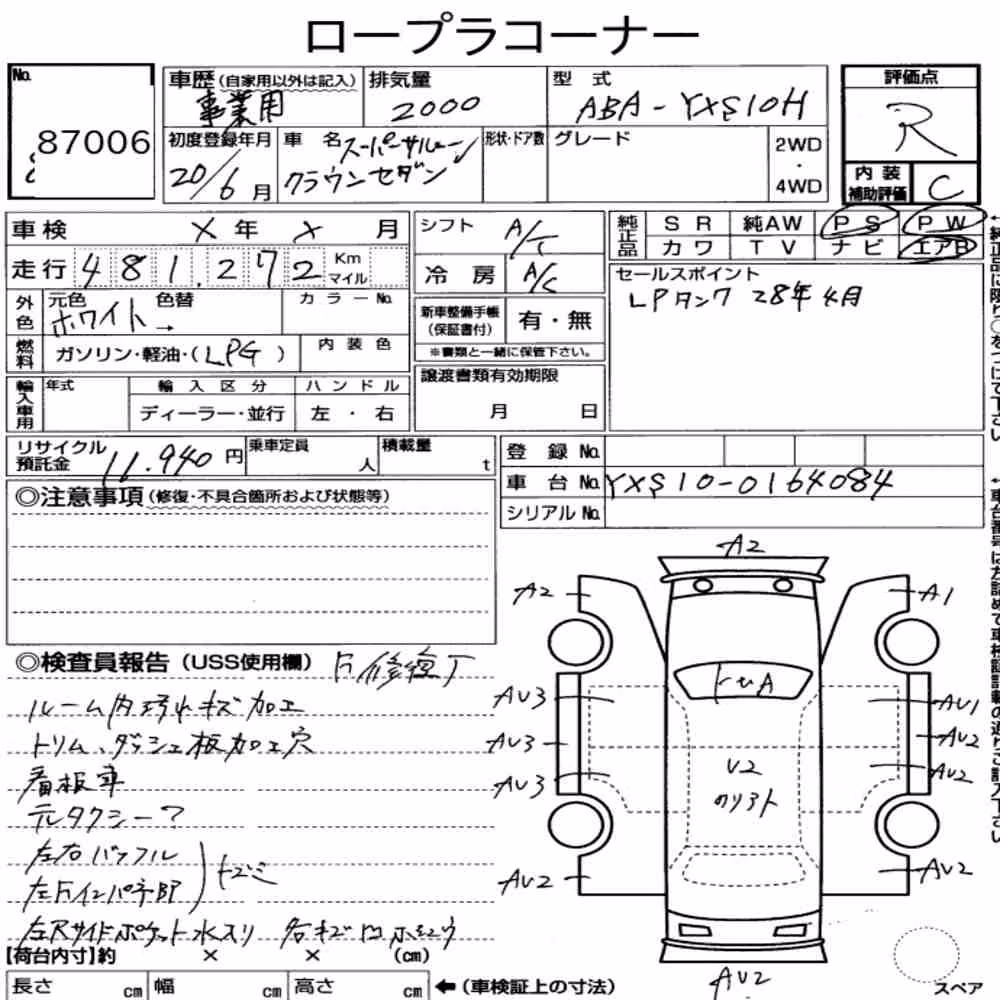 ロープラコーナー
No. 87006
車歴(自家用以外は記入) 事業用
排気量 2000
型式 ABA-YXS10H
評価点 R
初度登録年月 20/6月
車名 スーパーサルーン クラウンセダン
形状・ドア数
グレード
2WD・4WD
内装補助評価 C
車検 × 年 × 月
走行 481,272 Km マイル
シフト A/T
冷房 A/C
純正品 SR 純AW PS PW
カワ TV ナビ エアB
外色 元色 ホワイト → 色替 カラーNo.
セールスポイント
LPタンク 28年4月
燃料 ガソリン・軽油・(LPG) 内装色
新車整備手帳(保証書付) 有・無
※書類と一緒に保管下さい。
輸入車用 年式 輸入区分 ハンドル
ディーラー・並行 左・右
譲渡書類有効期限
月 日
リサイクル預託金 11,940円
乗車定員 人
積載量 t
登録No.
車台No. YXS10-0164084
シリアルNo.
◎注意事項(修復・不具合箇所および状態等)
◎検査員報告(USS使用欄)
ルーム内汚れキズ加工
トリム、ダッシュ板加工穴
看板車
元タクシー
左右バッフル
A2
A2 A1
AU3 AU1
AU3 AU2
AU3 AU2
U2
AU2 AU2
AU2
スペア
【荷台内寸】約 × × (cm)
長さ cm 幅 cm 高さ cm ←(車検証上の寸法)